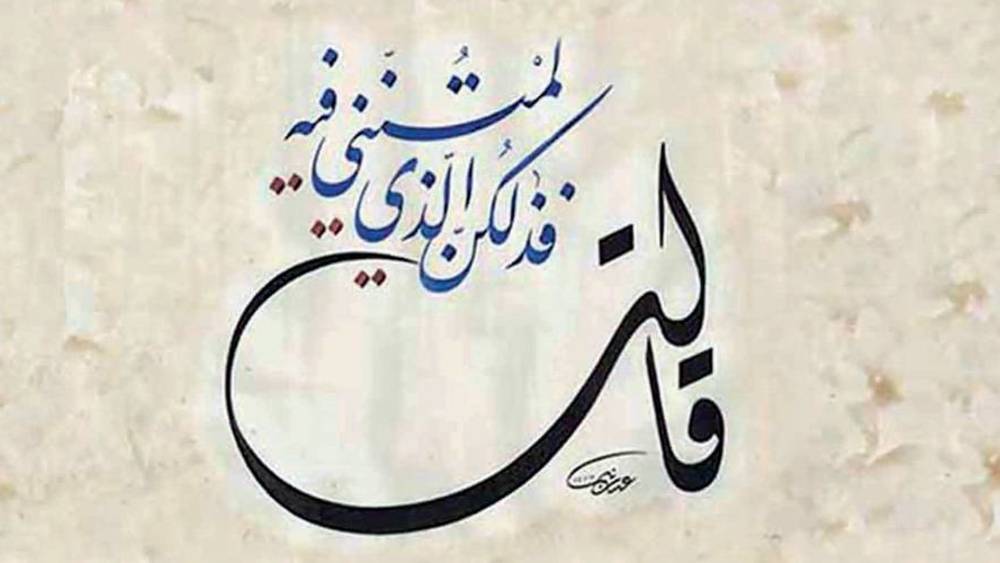 قالت
فذٰلكُنّ الّذي
لُمْتُنَّني فيه